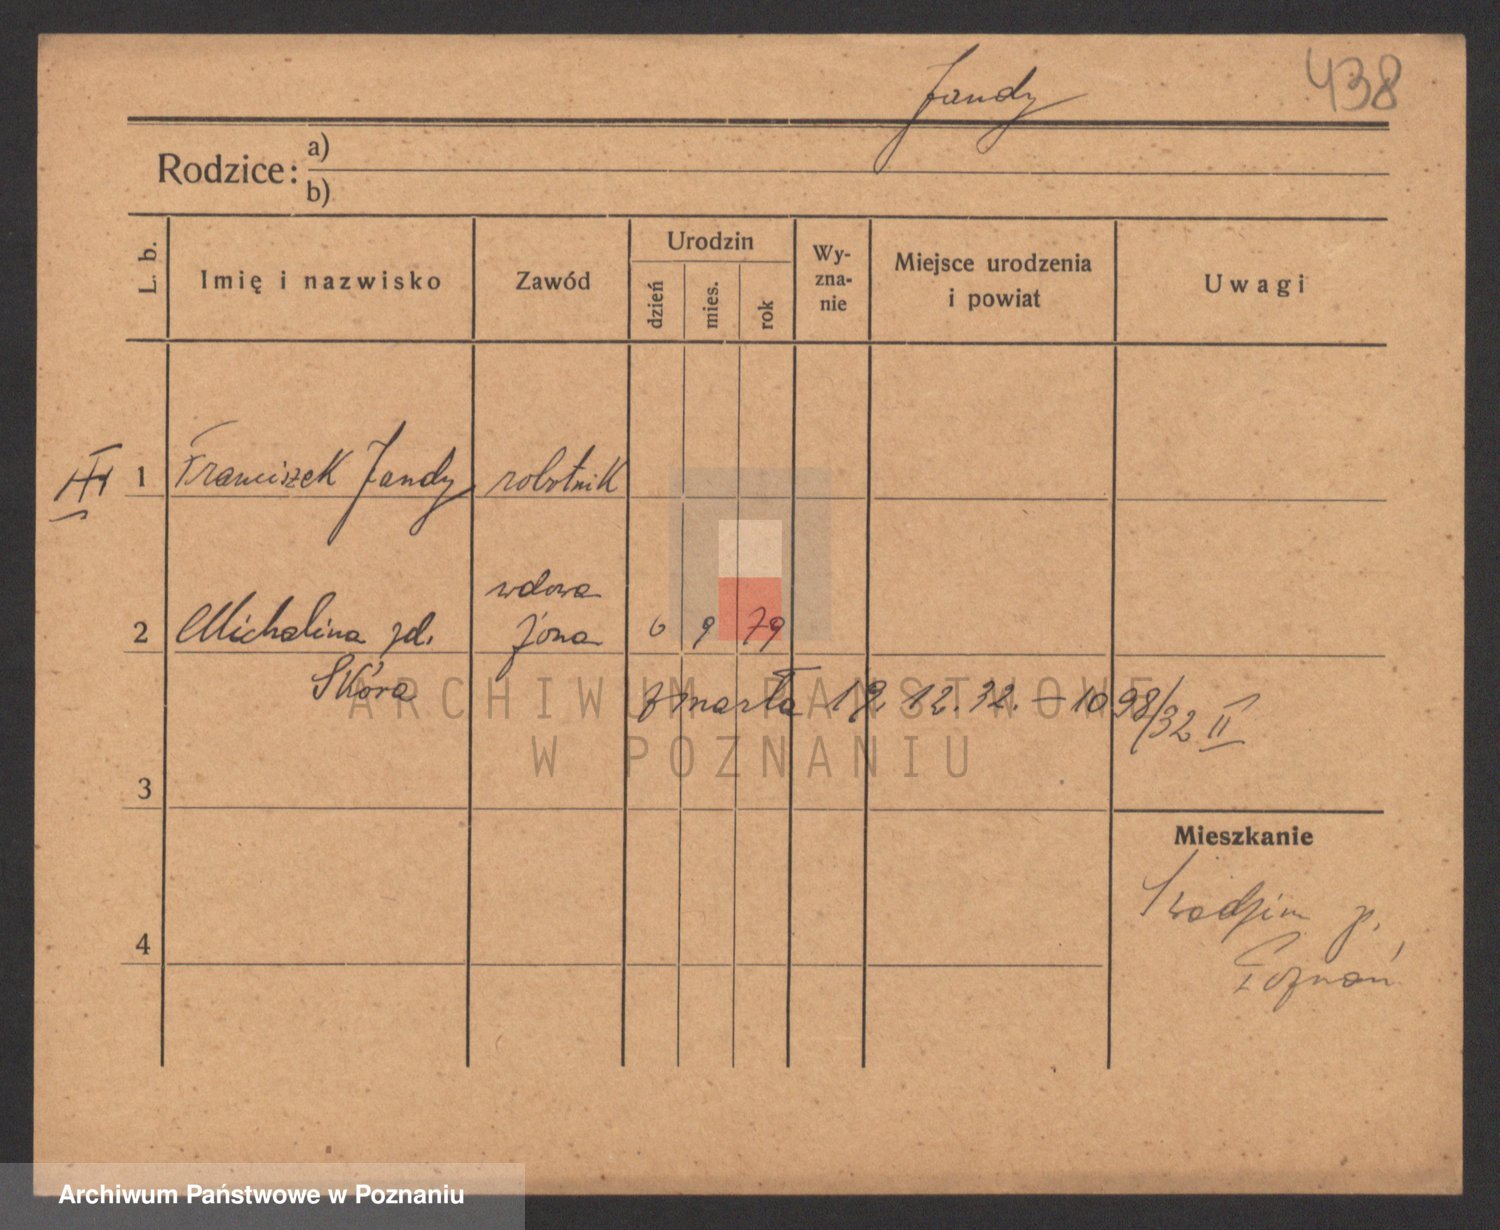 Jandy
438
Rodzice: a)
b)
L. b.
Imię i nazwisko
Zawód
Urodzin
dzień
mies.
rok
Wy-
zna-
nie
Miejsce urodzenia
i powiat
Uwagi
1 Franciszek Jandy robotnik
wdowa
2 Michalina zd. żona 6 9 79
Skóra
zmarła 19. 12. 32. – 1098/32 II
3
Mieszkanie
Swadzim p.
Poznań
4
ARCHIWUM PAŃSTWOWE
W POZNANIU
Archiwum Państwowe w Poznaniu